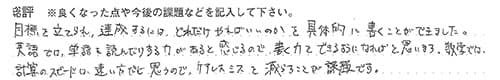 総評　※良くなった点や今後の課題などを記入して下さい。
目標を立てられ、達成するには、どれだけやればいいのかを具体的に書くことができました。
英語では、単語を読んだりする力があると感じるので、書く力もできるようになればと思います。数学では、
計算のスピードは、速い方だと思うので、ケアレスミスを減らすことが課題です。